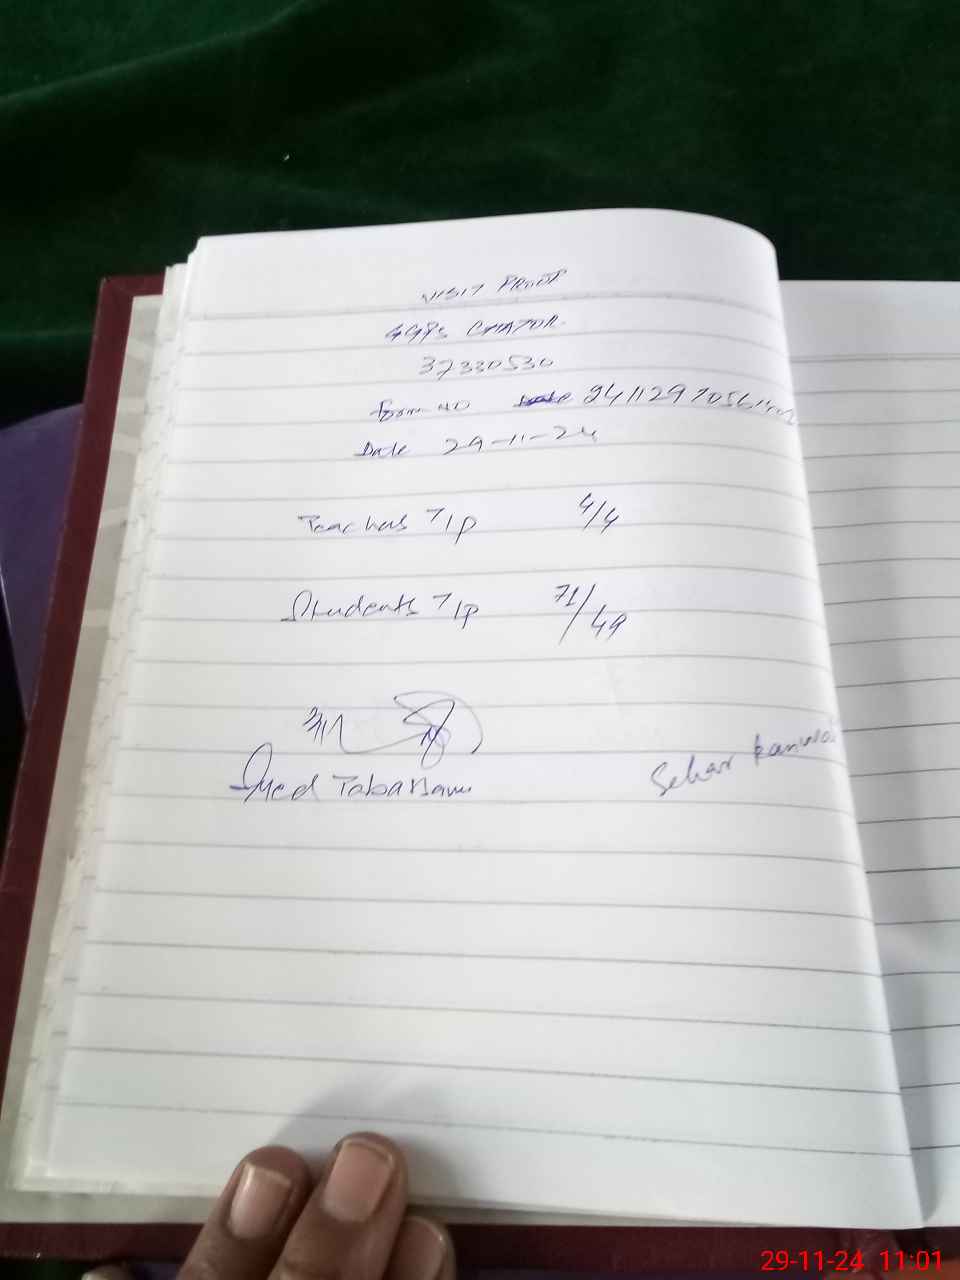 VISIT PROOF
GGPS CHATOR
37330530
Form NO 241129205614
Date 29-11-24
Teachers T/P 4/4
Students T/P 71/49
Syed Tabassam
Sehar Kanwal
29-11-24 11:01